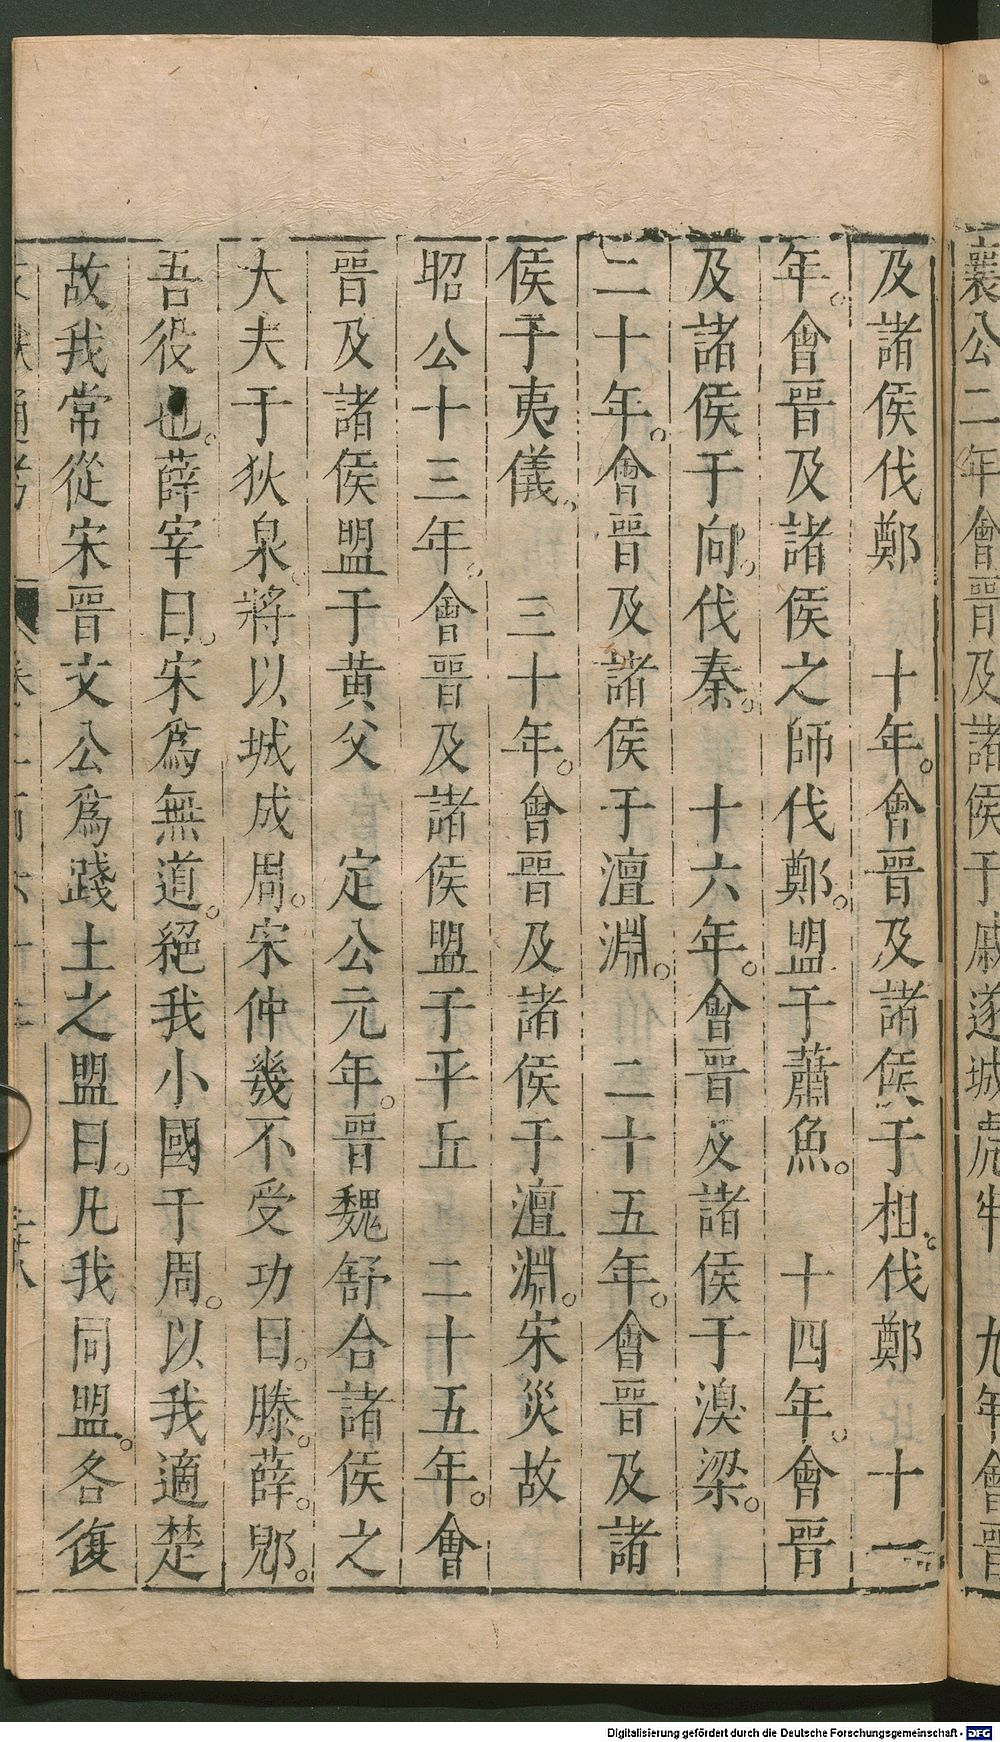 襄公二年會晉及諸侯于戚遂城虎牢 九年會晉
及諸侯伐鄭 十年。會晉及諸侯于柤。伐鄭 十一
年。會晉及諸侯之師伐鄭。盟于蕭魚。 十四年。會晉
及諸侯于向。伐秦。 十六年。會晉及諸侯于湨梁。
二十年。會晉及諸侯于澶淵。 二十五年。會晉及諸
侯于夷儀。 三十年。會晉及諸侯于澶淵。宋災故
昭公十三年。會晉及諸侯盟于平丘 二十五年。會
晉及諸侯盟于黃父 定公元年。晉魏舒合諸侯之
大夫于狄泉。將以城成周。宋仲幾不受功曰。滕。薛。郳。
吾役也。薛宰曰。宋爲無道。絕我小國于周。以我適楚
故我常從宋晉文公爲踐土之盟曰。凡我同盟。各復
Digitalisierung gefördert durch die Deutsche Forschungsgemeinschaft - DFG